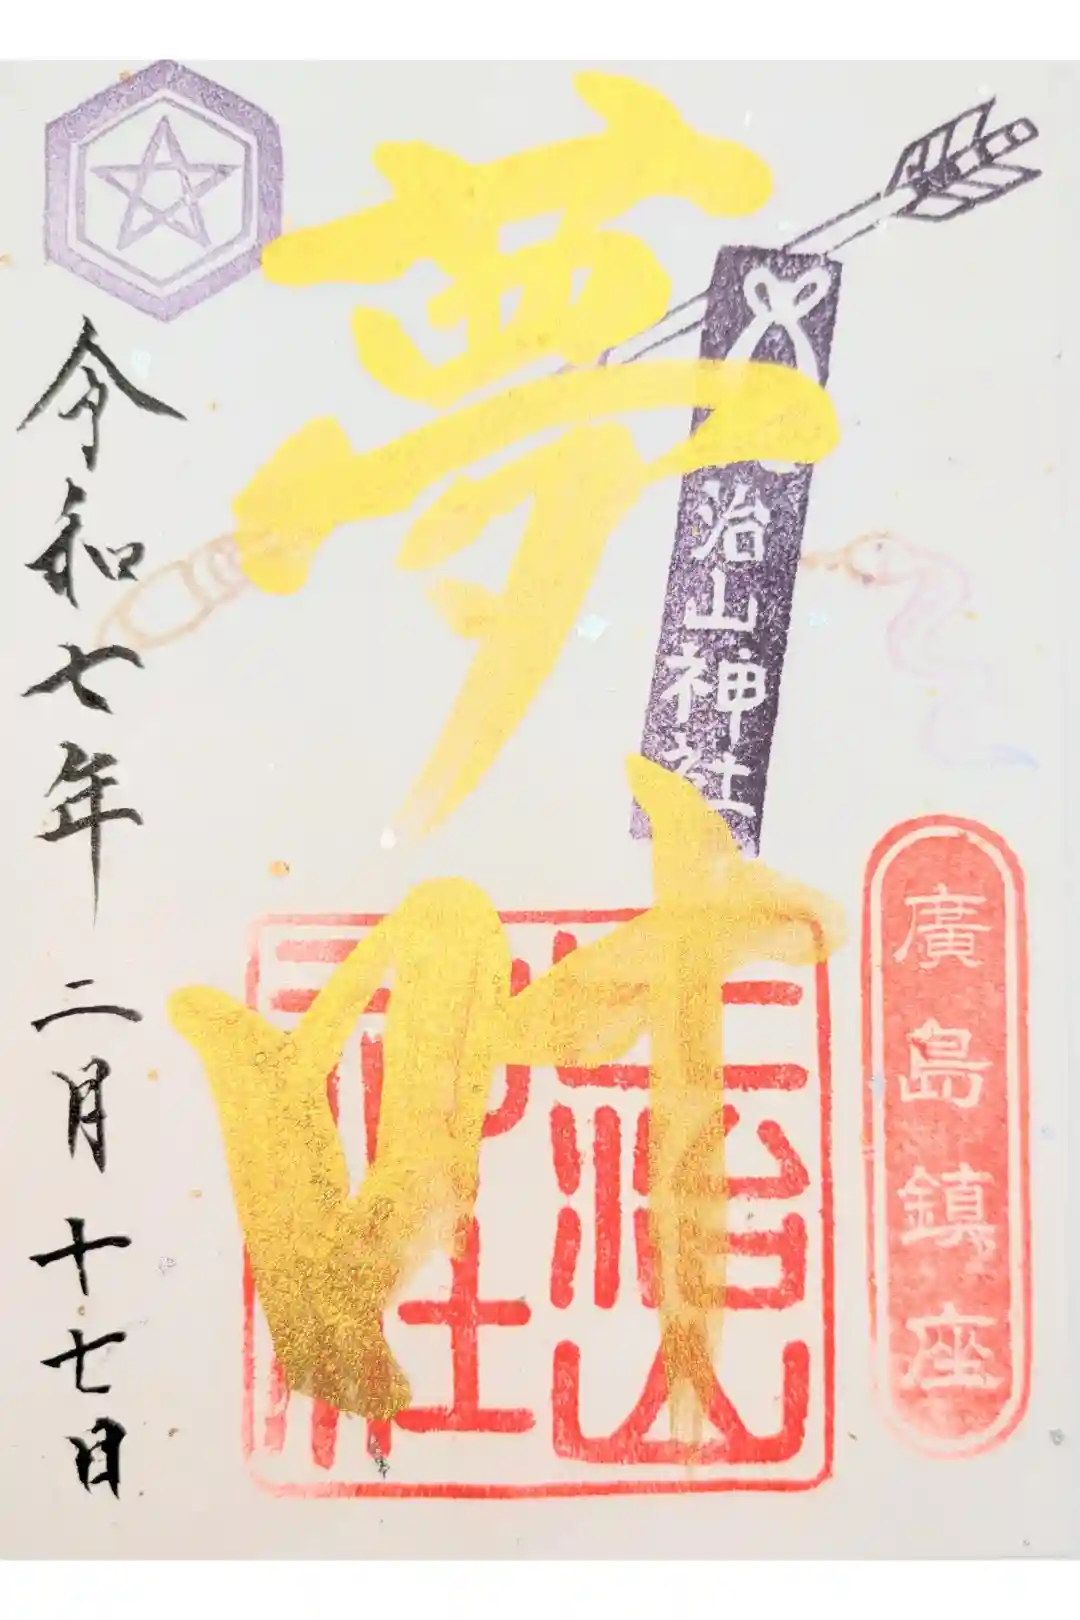 廣島鎮座
治山神社
夢叶
令和七年二月十七日